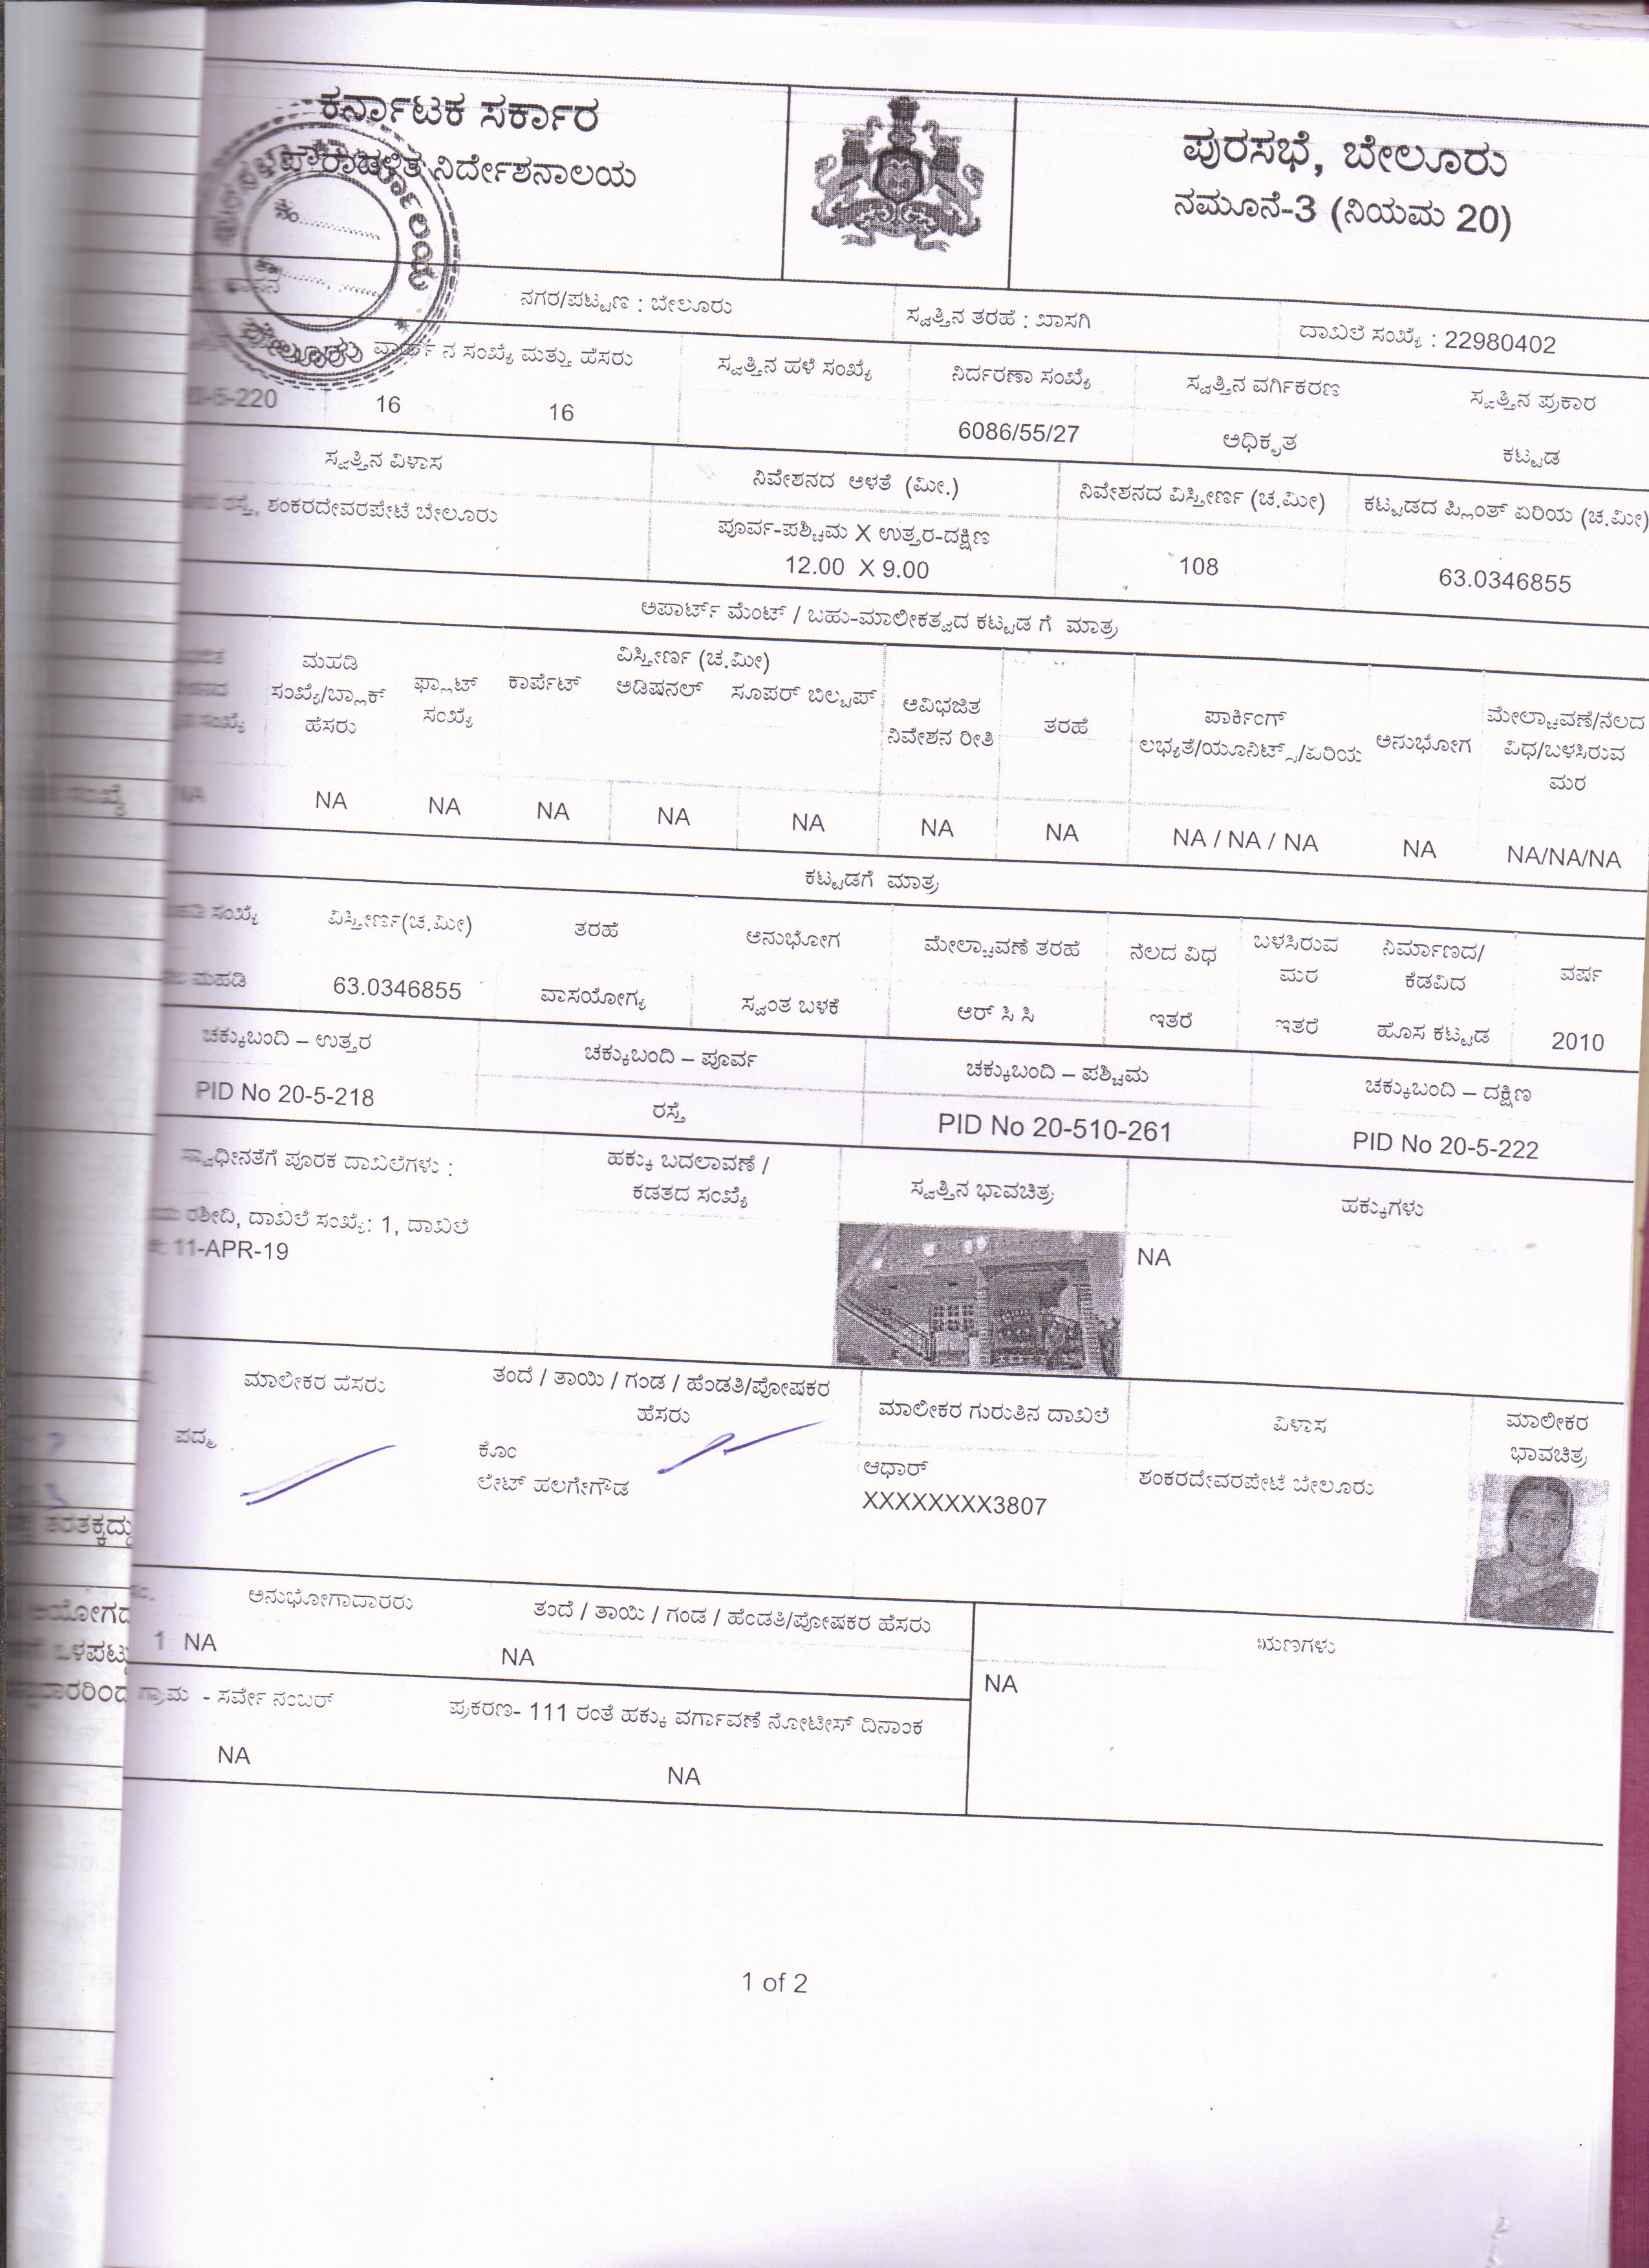 ಕರ್ನಾಟಕ ಸರ್ಕಾರ
ಪೌರಾಡಳಿತ ನಿರ್ದೇಶನಾಲಯ
ಪುರಸಭೆ, ಬೇಲೂರು
ನಮೂನೆ-3 (ನಿಯಮ 20)
ನಂ
ಬೇಲೂರು
ನಗರ/ಪಟ್ಟಣ : ಬೇಲೂರು ಸ್ವತ್ತಿನ ತರಹೆ : ಖಾಸಗಿ ದಾಖಲೆ ಸಂಖ್ಯೆ : 22980402
ವಾರ್ಡ್ ನ ಸಂಖ್ಯೆ ಮತ್ತು ಹೆಸರು ಸ್ವತ್ತಿನ ಹಳೆ ಸಂಖ್ಯೆ ನಿರ್ದರಣಾ ಸಂಖ್ಯೆ ಸ್ವತ್ತಿನ ವರ್ಗಿಕರಣ ಸ್ವತ್ತಿನ ಪ್ರಕಾರ
-5-220 16 16 6086/55/27 ಅಧಿಕೃತ ಕಟ್ಟಡ
ಸ್ವತ್ತಿನ ವಿಳಾಸ ನಿವೇಶನದ ಅಳತೆ (ಮೀ.) ನಿವೇಶನದ ವಿಸ್ತೀರ್ಣ (ಚ.ಮೀ) ಕಟ್ಟಡದ ಪ್ಲಿಂತ್ ಏರಿಯ (ಚ.ಮೀ)
ರಸ್ತೆ, ಶಂಕರದೇವರಪೇಟೆ ಬೇಲೂರು ಪೂರ್ವ-ಪಶ್ಚಿಮ X ಉತ್ತರ-ದಕ್ಷಿಣ
12.00 X 9.00 108 63.0346855
ಅಪಾರ್ಟ್ ಮೆಂಟ್ / ಬಹು-ಮಾಲೀಕತ್ವದ ಕಟ್ಟಡ ಗೆ ಮಾತ್ರ
ವಿಸ್ತೀರ್ಣ (ಚ.ಮೀ)
ಮಹಡಿ ಫ್ಲಾಟ್ ಕಾರ್ಪೆಟ್ ಅಡಿಷನಲ್ ಸೂಪರ್ ಬಿಲ್ಟಪ್ ಅವಿಭಜಿತ ತರಹೆ ಪಾರ್ಕಿಂಗ್ ಅನುಭೋಗ ಮೇಲ್ಚಾವಣೆ/ನೆಲದ
ಸಂಖ್ಯೆ/ಬ್ಲಾಕ್ ಸಂಖ್ಯೆ ನಿವೇಶನ ರೀತಿ ಲಭ್ಯತೆ/ಯೂನಿಟ್ಸ್/ಏರಿಯ ವಿಧ/ಬಳಸಿರುವ
ಸಂಖ್ಯೆ ಹೆಸರು ಮರ
NA NA NA NA NA NA NA NA NA / NA / NA NA NA/NA/NA
ಕಟ್ಟಡಗೆ ಮಾತ್ರ
ಸಂಖ್ಯೆ ವಿಸ್ತೀರ್ಣ(ಚ.ಮೀ) ತರಹೆ ಅನುಭೋಗ ಮೇಲ್ಚಾವಣೆ ತರಹೆ ನೆಲದ ವಿಧ ಬಳಸಿರುವ ನಿರ್ಮಾಣದ/ ವರ್ಷ
ಮರ ಕೆಡವಿದ
ಮಹಡಿ 63.0346855 ವಾಸಯೋಗ್ಯ ಸ್ವಂತ ಬಳಕೆ ಆರ್ ಸಿ ಸಿ ಇತರೆ ಇತರೆ ಹೊಸ ಕಟ್ಟಡ 2010
ಚಕ್ಕುಬಂದಿ – ಉತ್ತರ ಚಕ್ಕುಬಂದಿ – ಪೂರ್ವ ಚಕ್ಕುಬಂದಿ – ಪಶ್ಚಿಮ ಚಕ್ಕುಬಂದಿ – ದಕ್ಷಿಣ
PID No 20-5-218 ರಸ್ತೆ PID No 20-510-261 PID No 20-5-222
ಸ್ವಾಧೀನತೆಗೆ ಪೂರಕ ದಾಖಲೆಗಳು : ಹಕ್ಕು ಬದಲಾವಣೆ / ಸ್ವತ್ತಿನ ಭಾವಚಿತ್ರ ಹಕ್ಕುಗಳು
ಕಡತದ ಸಂಖ್ಯೆ
ರಶೀದಿ, ದಾಖಲೆ ಸಂಖ್ಯೆ: 1, ದಾಖಲೆ
11-APR-19 NA
ಮಾಲೀಕರ ಹೆಸರು ತಂದೆ / ತಾಯಿ / ಗಂಡ / ಹೆಂಡತಿ/ಪೋಷಕರ ಮಾಲೀಕರ ಗುರುತಿನ ದಾಖಲೆ ವಿಳಾಸ ಮಾಲೀಕರ
ಹೆಸರು ಭಾವಚಿತ್ರ
ಪದ್ಮ ಕೊಂ ಆಧಾರ್ ಶಂಕರದೇವರಪೇಟೆ ಬೇಲೂರು
ಲೇಟ್ ಹಲಗೇಗೌಡ XXXXXXXX3807
ಅನುಭೋಗಾದಾರರು ತಂದೆ / ತಾಯಿ / ಗಂಡ / ಹೆಂಡತಿ/ಪೋಷಕರ ಹೆಸರು ಋಣಗಳು
1 NA NA NA
ಗ್ರಾಮ - ಸರ್ವೇ ನಂಬರ್ ಪ್ರಕರಣ- 111 ರಂತೆ ಹಕ್ಕು ವರ್ಗಾವಣೆ ನೋಟೀಸ್ ದಿನಾಂಕ
NA NA
1 of 2